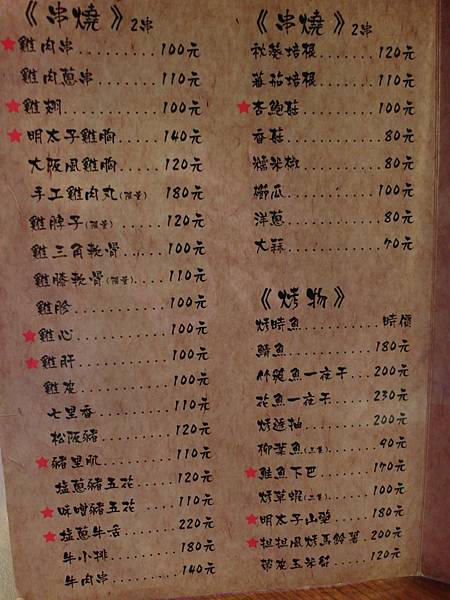 《串燒》2串
雞肉串.........100元
雞肉蔥串......110元
雞翅............100元
明太子雞胸......140元
大阪風雞胸.....120元
手工雞肉丸(限量) 180元
雞脖子(限量)......120元
雞三角軟骨......100元
雞膝軟骨(限量)....110元
雞胗............100元
雞心............100元
雞肝............100元
雞皮............100元
七里香..........110元
松阪豬..........120元
豬里肌..........110元
鹽蔥豬五花.....120元
味噌豬五花.....110元
鹽蔥牛舌........220元
牛小排..........180元
牛肉串..........140元
《串燒》2串
秋葵培根........120元
蕃茄培根........110元
杏鮑菇..........100元
香菇............80元
糯米椒..........80元
櫛瓜............100元
洋蔥............80元
大蒜............70元
《烤物》
烤時魚..........時價
鯖魚............180元
竹筴魚一夜干...200元
花魚一夜干.....230元
烤透抽..........200元
柳葉魚(三隻)......90元
鮭魚下巴........170元
烤草蝦(二隻)......100元
明太子山藥.....180元
担担風烤馬鈴薯.200元
帶皮玉米筍......120元